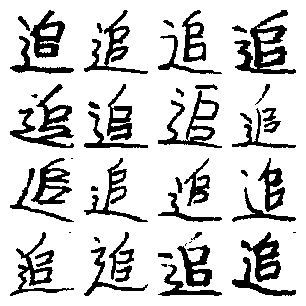 追追追追
追追追追
追追追追
追追追追